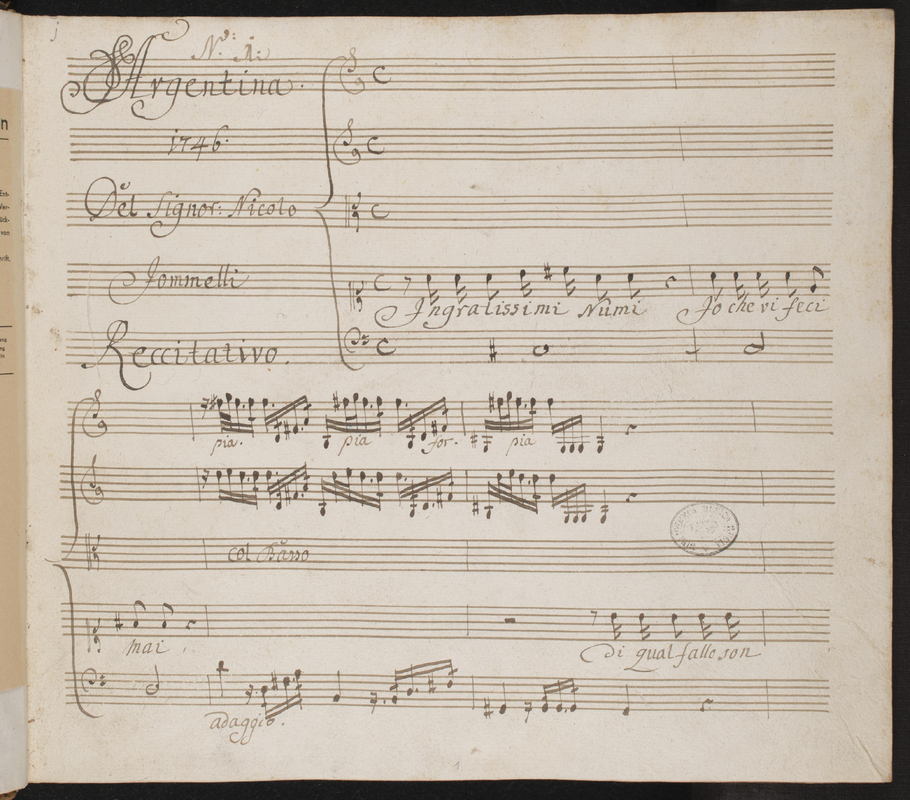 Nº: 1:
Argentina.
1746.
Del Signor: Nicolo
Jommelli
Ingratissimi Numi Jo che vi feci
Reccitativo.
pia. pia for. pia
col Basso
mai
di qual fallo son
adaggio.